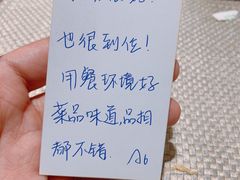 也很到位！
用餐环境好
菜品味道,品相
都不错.